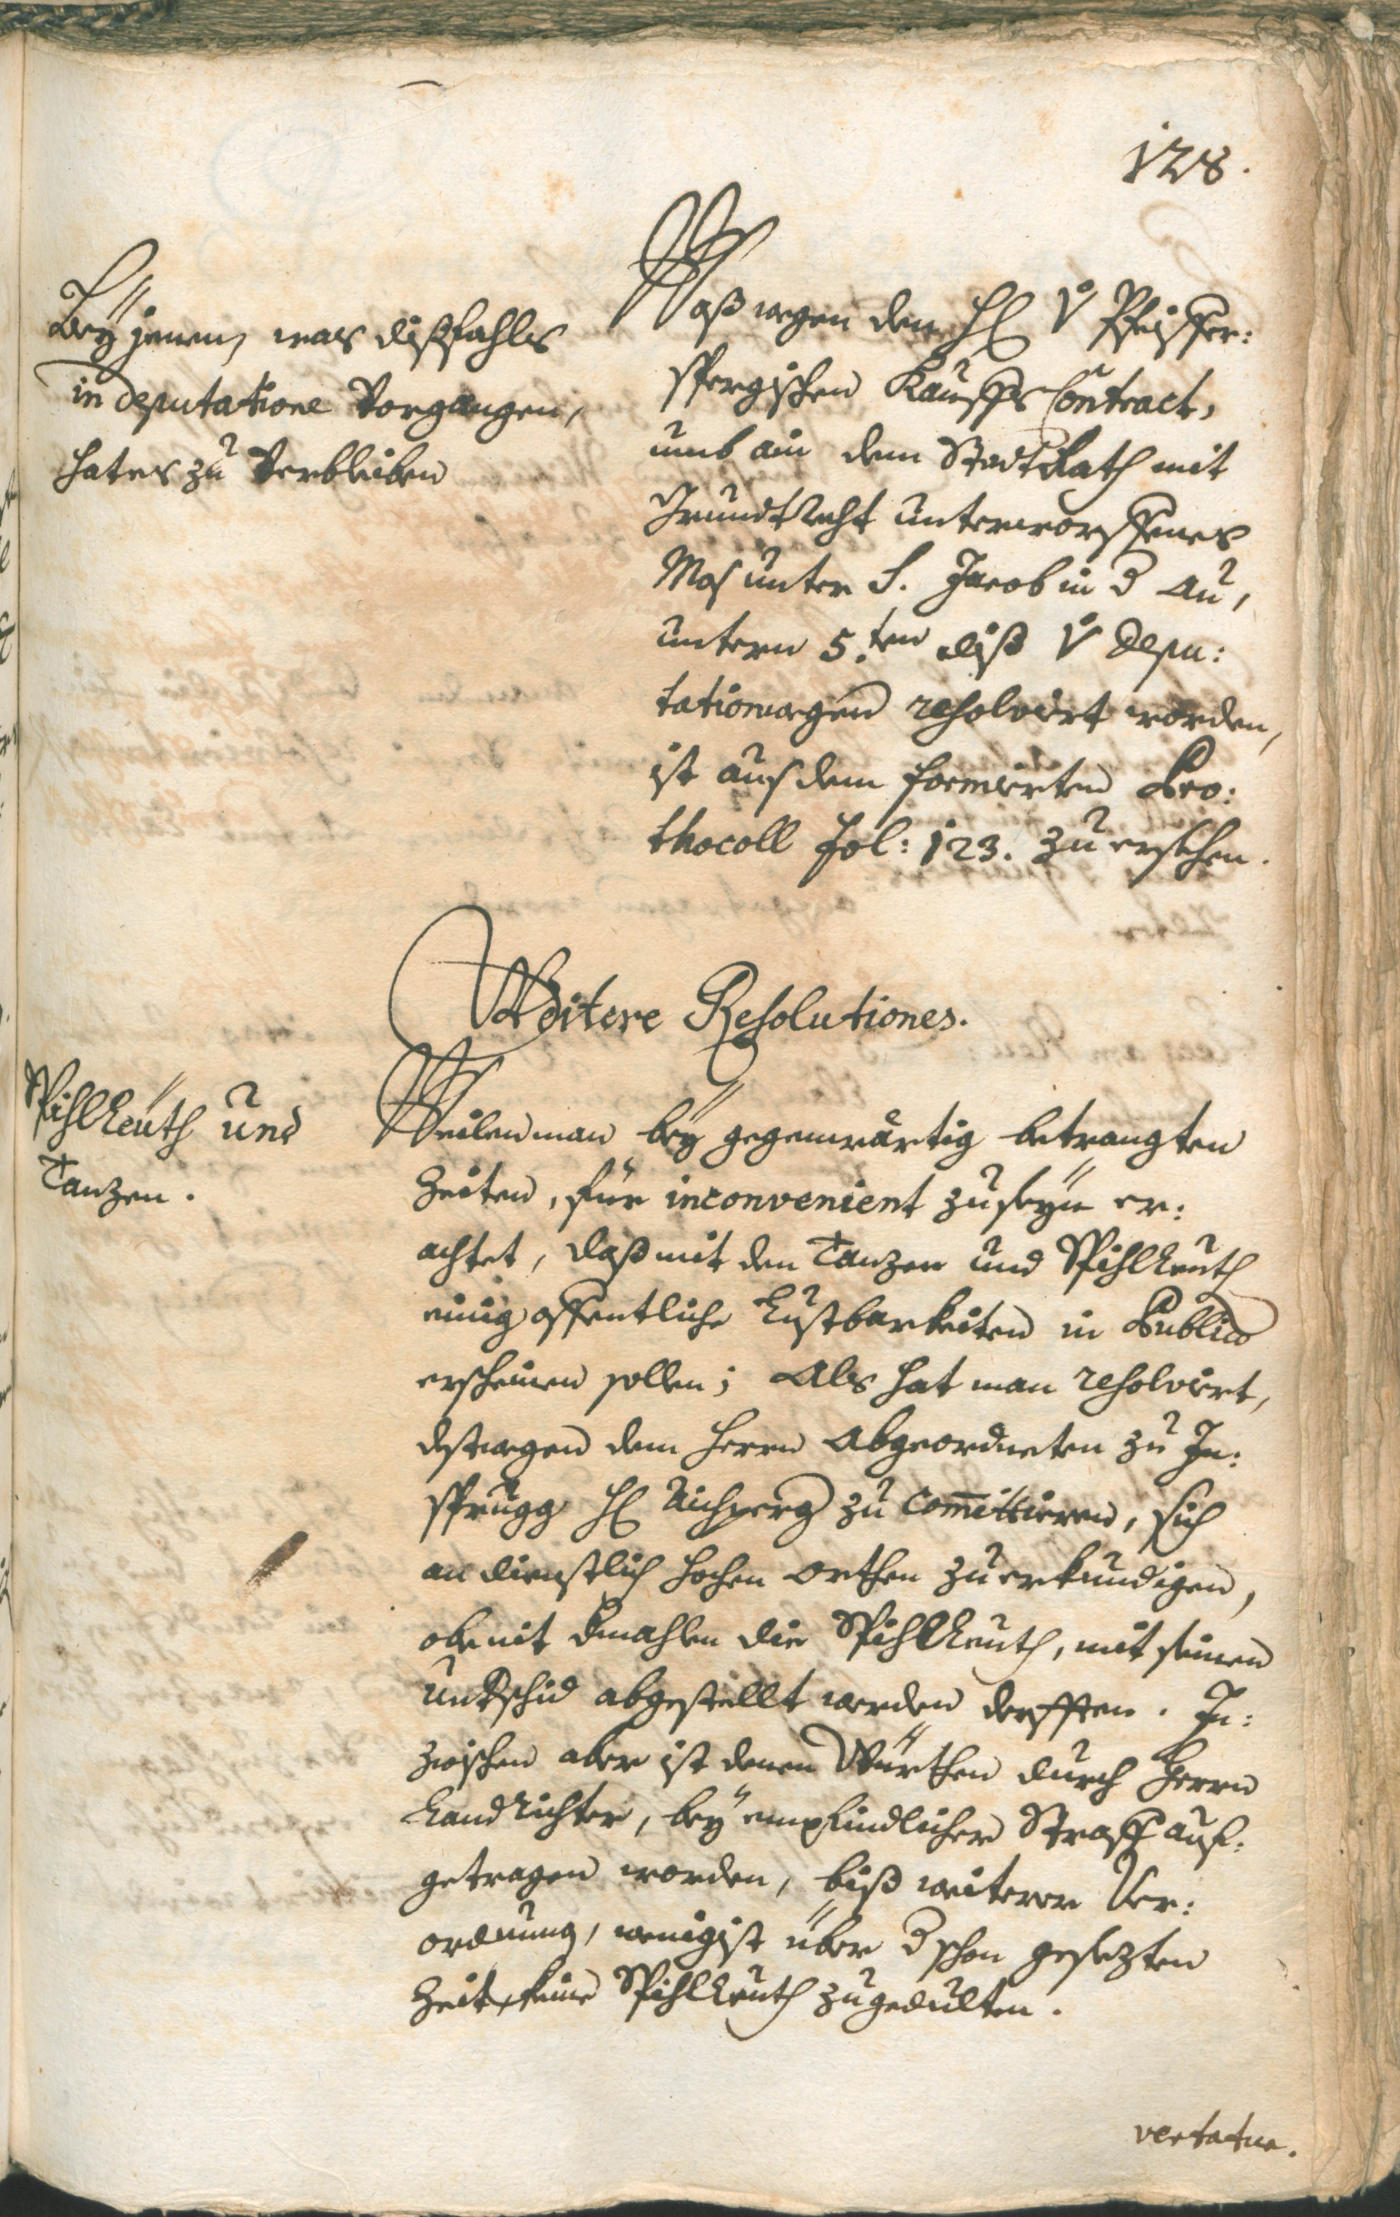 128.
Bey jenem, was dißfahls
in deputatione Vorgangen,
hat es zu Verbleiben
Waß wegen dem H: v Pfeiffer:
spergischen Kauffs Contract,
umb ain dem StadtRath mit
Grundtrecht unterworffenes
Mos unter S. Jacob in d Au,
untern 5.ten diß v Depu:
tationwegen resolvirt worden,
ist aus dem formirten Pro:
thocoll fol: 123. zu ersehen.
Weitere Resolutiones.
Spihlleuth und
Tanzen.
Weilen man bey gegenwärtig betrangten
Zeiten, für inconvenient zu seyn er:
achtet, daß mit den Tanzen und Spihlleuth
einig offentliche Lustbarkeiten in Publico
erscheinen sollen; Als hat man resolvirt,
destwegen dem Herrn Abgeordneten zu In:
sprugg H: Aichperg zu committieren, sich
an dienstlich hochen Orthen zu erkundigen,
ob nit dmahlen die Spihlleuth, mit seinen
untschid abgestellt werden derfften. In:
zwischen aber ist denen Würthen durch Herrn
Landrichter, bey empfindlicher Straff auf:
getragen worden, biß weiterer Ver:
ordnung, wenigist über d schon gesezten
Zeit, keine Spihlleuth zugedulten.
vertatur.